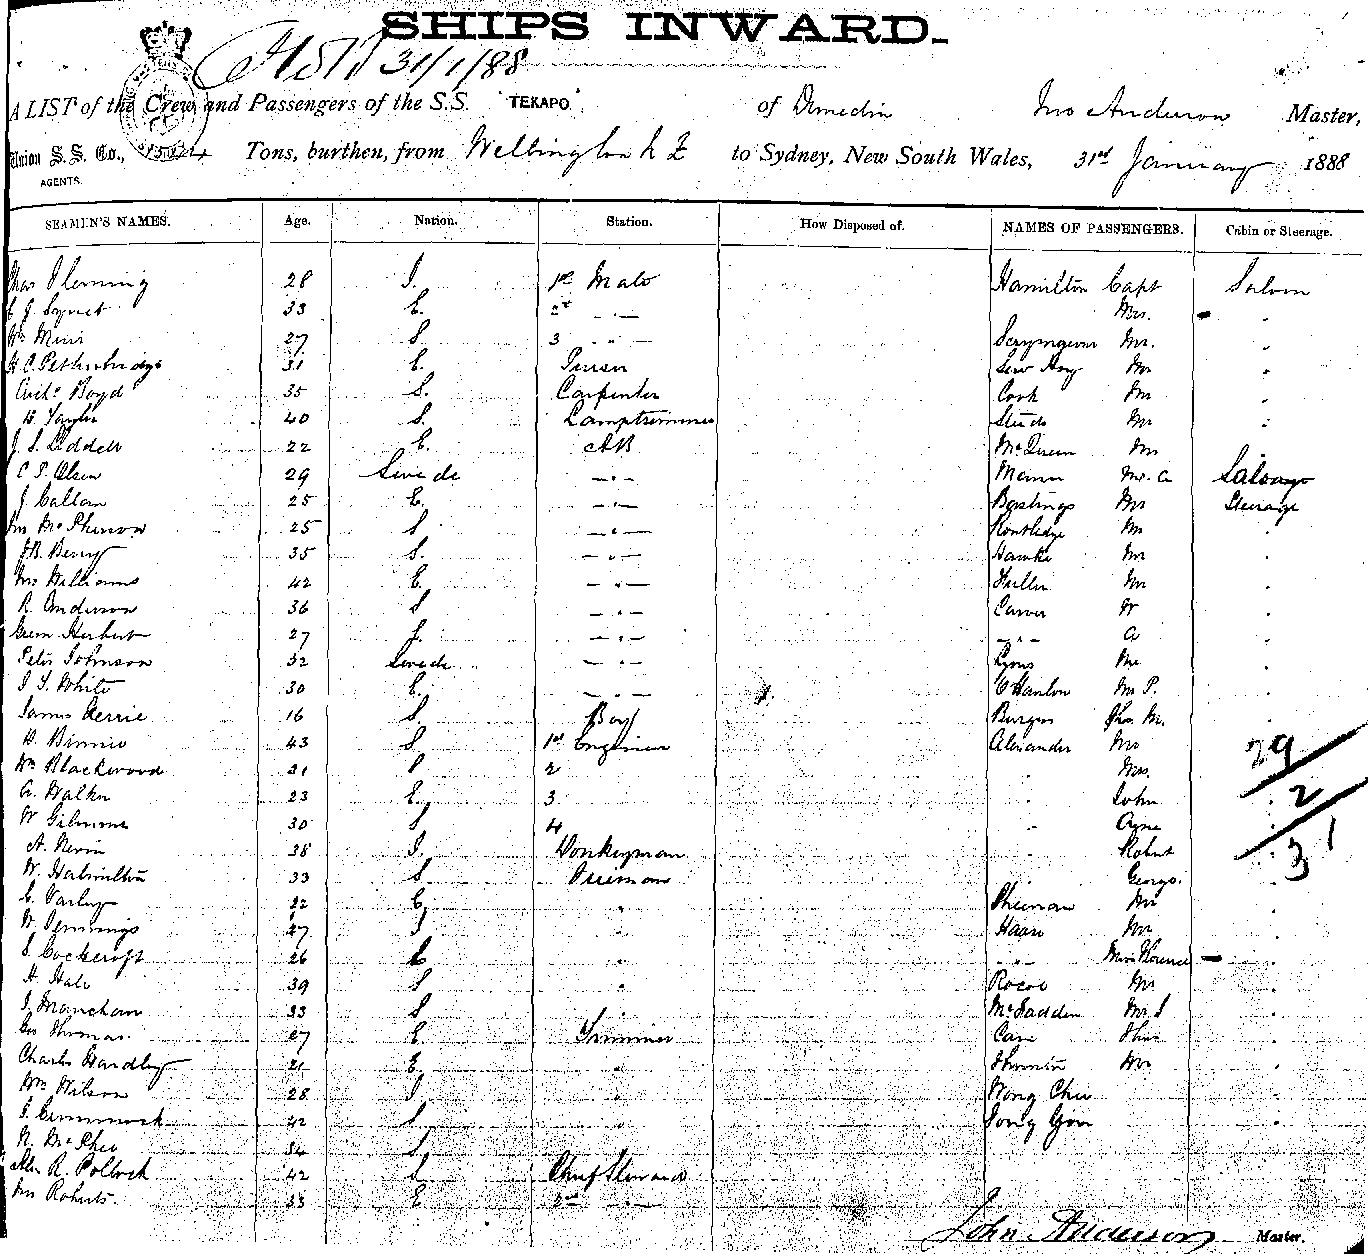 SHIPS INWARD.
31/1/88
A LIST of the Crew and Passengers of the S.S. TEKAPO of Dunedin Jno Anderson Master,
Union S. S. Co., Tons, burthen, from Wellington N Z to Sydney, New South Wales, 31st January 1888
AGENTS.
SEAMEN'S NAMES. Age. Nation. Station. How Disposed of. NAMES OF PASSENGERS. Cabin or Steerage.
Chas Fleming 28 I. 1st Mate Hamilton Capt Saloon
33 E. 2nd —"— Mrs. "
Wm Muir 27 S 3 —"— Scrymgeour Mr. "
H C Pethybridge 31 E. Purser Sew Hoy Mr "
Archd Boyd 35 S. Carpenter Cook Mr "
Taylor 40 S. Lamptrimmer Mr "
J. S. Liddell 22 E. AB McQueen Mr
C P. Olsen 29 Swede —"— Mann Mr. A Saloon
J Callan 25 E. —"— Bastings Mr Steerage
Jno McPherson 25 S —"— Routledge Mr "
J B. Berry 35 S. —"— Hawke Mr "
Jno Williams 42 E. —"— Fuller Mr "
R. Anderson 36 S —"— Carver W "
Herbert 27 —"— —"— A "
Peter Johnson 32 Swede —"— Lyons Mr "
White 30 E. —"— O'Hanlon Mr P. "
James Gerrie 16 S. Boy Burges "
D. Binnie 43 S 1st Engineer Alexander Mr 29
Wm Blackwood 31 2 " Mrs.
A. Walker 23 E. 3 " John 2
W Gilmour 30 S 4 "
A. Nevin 38 I. Donkeyman Robert 31
W. Hamilton 33 S. Fireman " George. "
E. Varley 22 E. " Mr "
W Jennings 27 " Haase Mr "
Cockcroft 26 E " —"— Miss Florence "
H. Hale 39 S " Rocoe Mr "
33 S " McFadden Mr J "
Geo Thomas 27 E Trimmer "
Charles Handley 21 E. " Mr "
Wm Wilson 28 " Wong Chee "
Cimmock 42 S " Gow "
N. McPhee 34 S,
Alex R. Pollock 42 S Chief Steward
Jno Roberts. 33 E 2nd —"—
John Anderson Master.